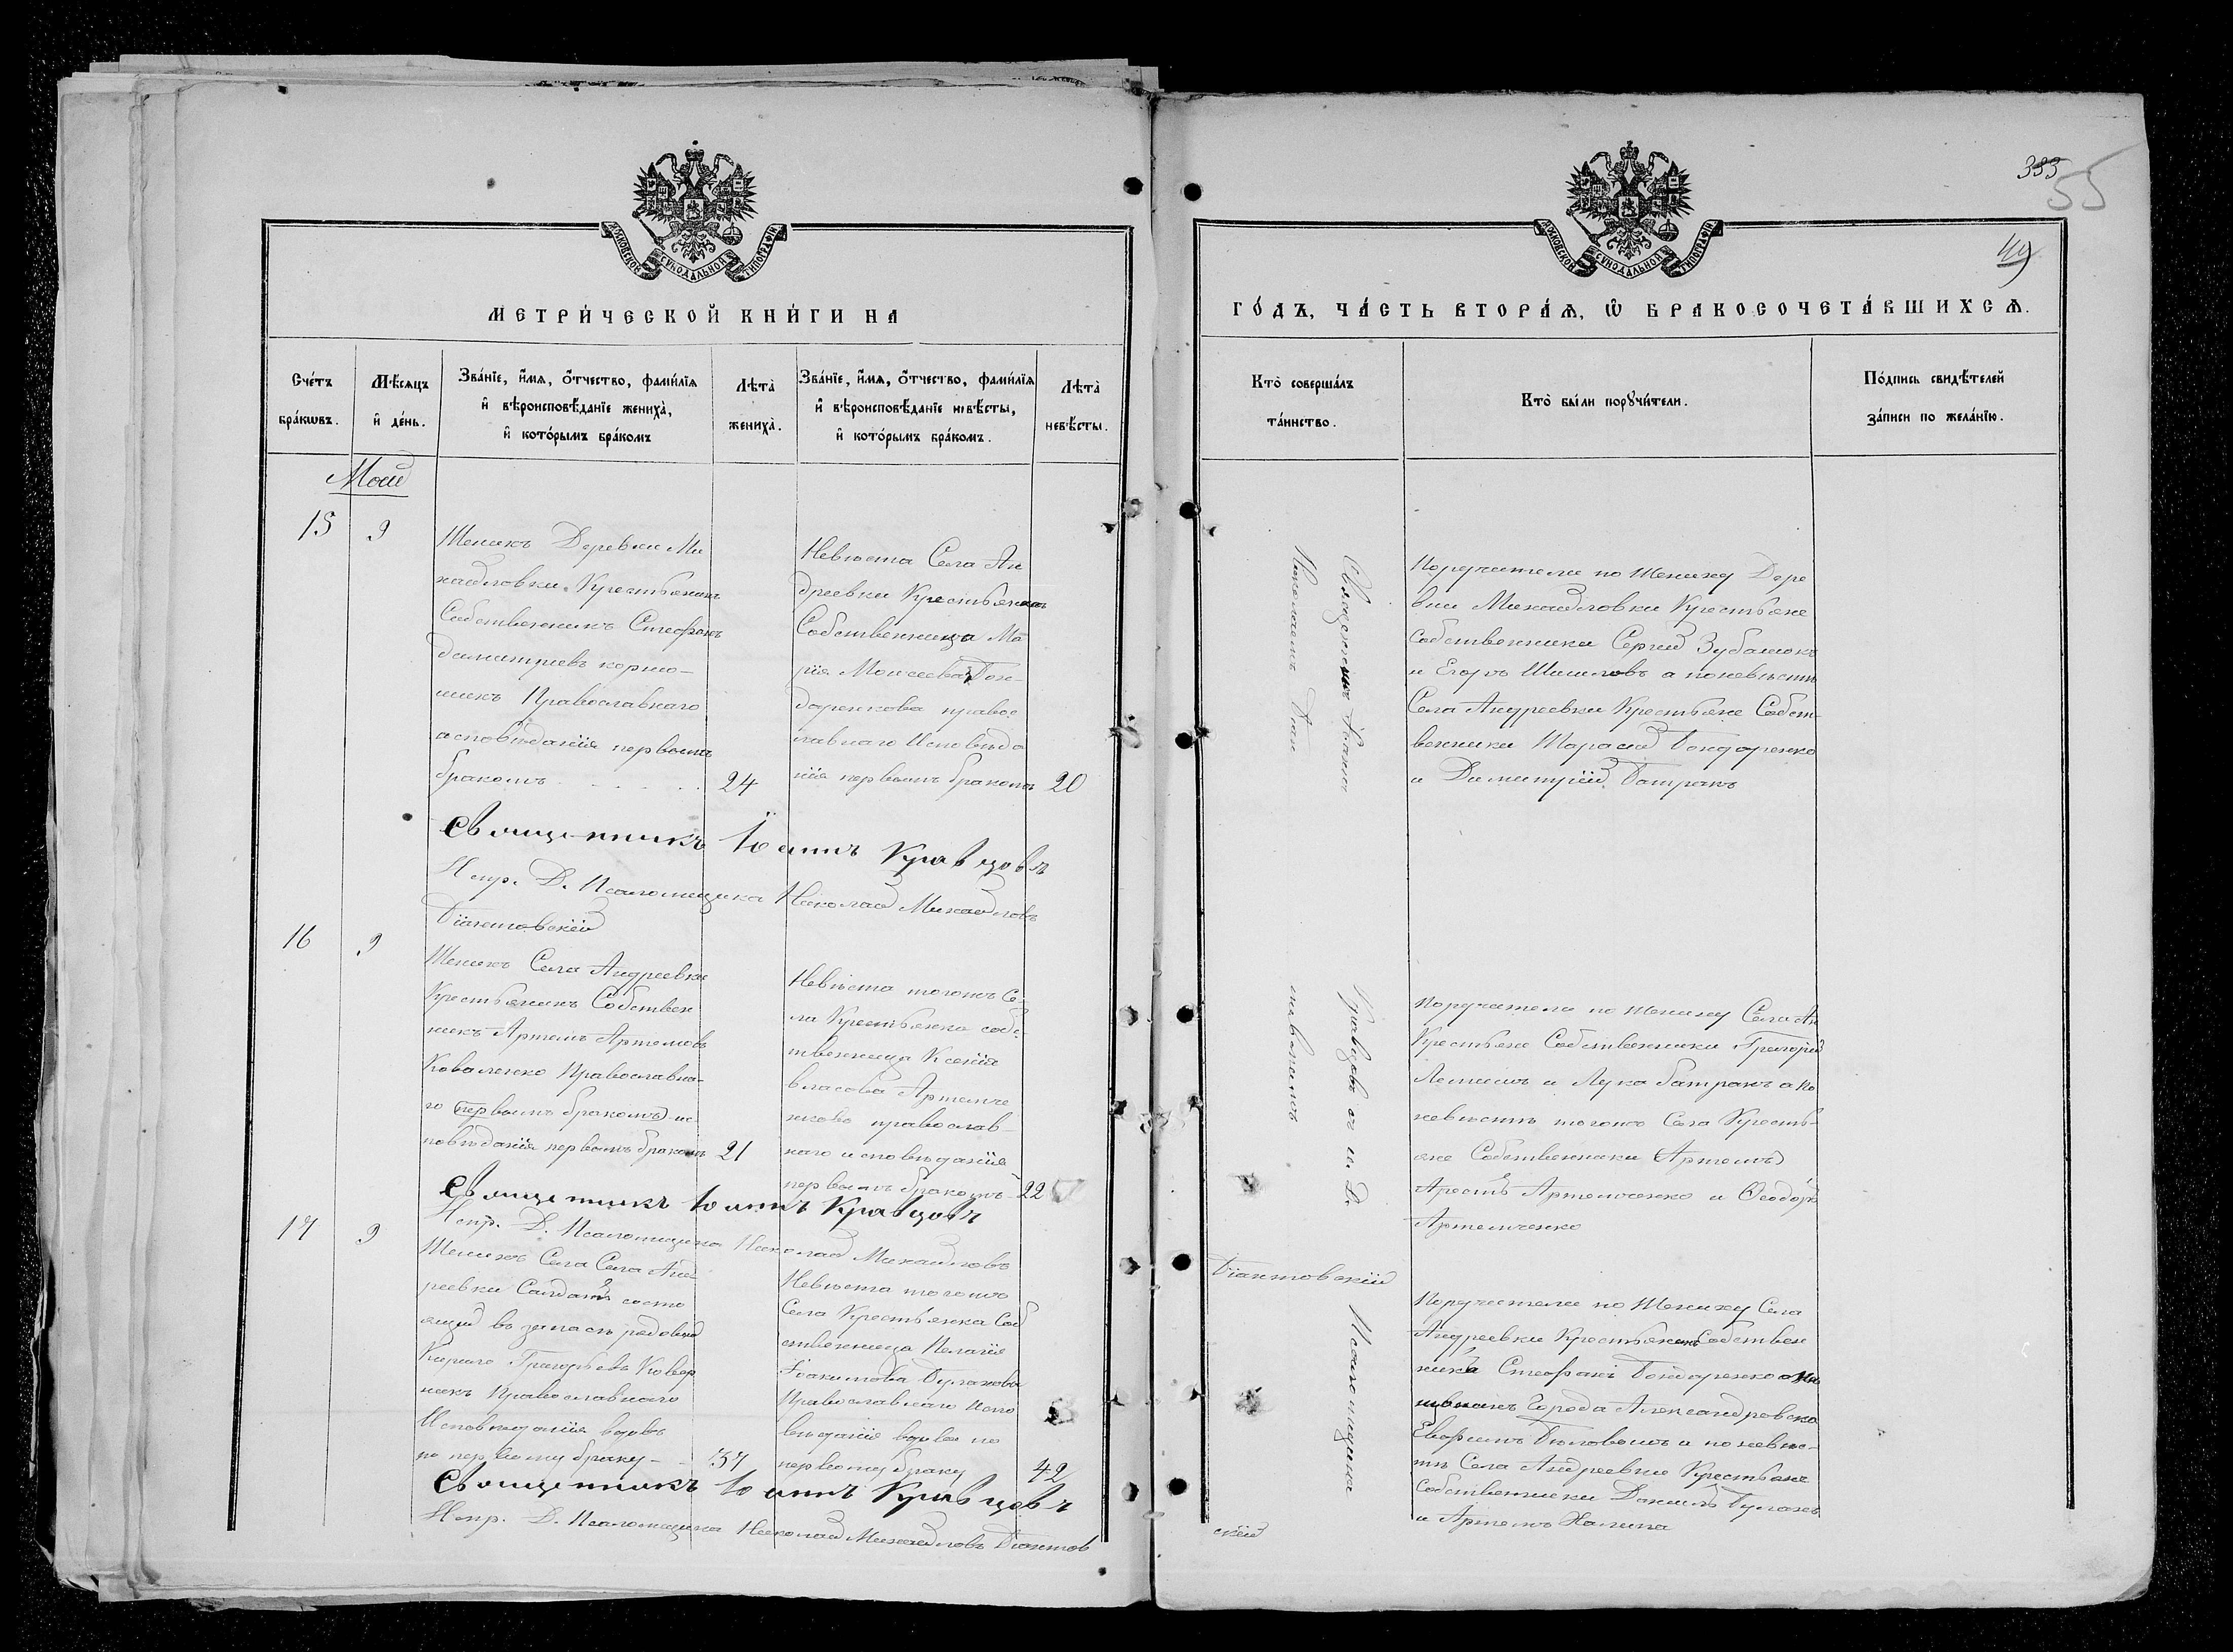 МОСКОВСКОЙ СѴНОДАЛЬНОЙ ТИПОГРАФІИ
МЕТРИ́ЧЕСКОЙ КНИ́ГИ НА
Сче́тъ
бра́кωвъ.
Мѣ́сяцъ
и҆ де́нь.
Зва́нїе, и҆́мя, ѻ҆́тчество, фами́лїя
и҆ вѣроисповѣ́данїе жениха̀,
и҆ кото́рымъ бра́комъ
Лѣта̀
жениха̀.
Зва́нїе, и҆́мя, ѻ҆́тчество, фами́лїя
и҆ вѣроисповѣ́данїе невѣ́сты,
и҆ кото́рымъ бра́комъ.
Лѣта̀
невѣ́сты.
Май
15
9
Женихъ Деревни Ми
хайловки Крестьянинъ
Собственникъ Стефанъ
Димитріевъ
никъ Православнаго
исповѣданія первымъ
бракомъ
24
Невѣста Села Ан
дреевки Крестьянка
Собственница Ма
рія Моисеева Бон-
даренкова правос
лавнаго Исповѣда
нія первымъ бракомъ
20
Священникъ Іоаннъ Кравцовъ
И спр. Д. Псаломщика Николай Михайловъ
Діантовскій
16
9
Женихъ Села Андреевки
Крестьянинъ Собствен
никъ Артемъ Артемовъ
Коваленко Православна-
го (первымъ бракомъ) ис
повѣданія первымъ бракомъ
21
Невѣста тогожъ Се-
ла Крестьянка собс
твенница Ксенія
Власова Артемче
нкова православ-
наго исповѣданія
первымъ бракомъ
22
Священникъ Іоаннъ Кравцовъ
Испр. Д. Псаломщика Николай Михайловъ
17
9
Женихъ Села Села Анд
реевки Салдатъ состо
ящій въ запасѣ рядовой
Кирило Григорьевъ Ковер
никъ Православнаго
Исповѣданія вдовъ
по первому браку -
37
Невѣста тогожъ
Села Крестьянка Соб
ственница Пелагія
Іоакимова Булахова
Православнаго Испо
вѣданія вдова по
первому браку
42
Священникъ Іоаннъ Кравцовъ
Испр. Д. Псаломщика Николай Михайловъ Діантов
333
55
49
МОСКОВСКОЙ СѴНОДАЛЬНОЙ ТИПОГРАФІИ
ГО́ДЪ, ЧА́СТЬ ВТОРА́Ѧ, Ѽ БРАКОСОЧЕТА́ВШИХСѦ.
Кто̀ соверша́лъ
та́инство.
Кто̀ бы́ли порꙋчи́тели.
По́дпись свидѣ́телей
за́писи по жела́нїю.
Священникъ Іоаннъ Кравцовъ съ и. д. Псаломщика
Николаемъ Діан
товскимъ
Поручители по Жениху Дере
вни Михайловки Крестьяне
собственники Сергій Зубашокъ
и Егоръ Шишловъ а поневѣстѣ
Села Андреевки Крестьяне Собст-
венники Тарасій Бондаренко
и Димитрій Батракъ
Поручители по жениху Села Ан
Крестьяне Собственники Григорій
Лемишъ и Лука Батракъ а по
невѣстѣ тогожъ Села Кресть-
яне Собственники (Артемъ)
Арестъ Артемченко и Ѳеодоръ
Артемченко
Діантовскій
Поручители по Жениху Села
Андреевки Крестьянинъ Собствен
никъ Стефанъ Бондаренко и Мѣ
щанинъ Города Александровска
Евфимъ Бѣловъ и по невѣс-
тѣ Села Андреевки Крестьяне
Собственники Даніилъ Булахъ
и Артемъ Халипа
скій